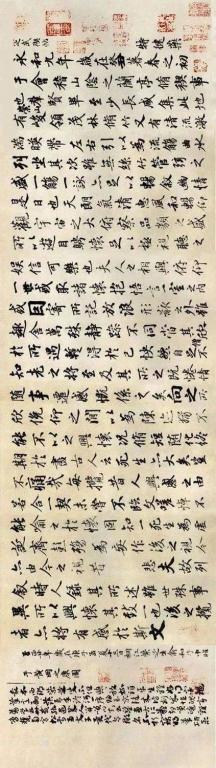 永和九年歲在癸丑暮春之初
于會稽山陰之蘭亭脩稧事
也羣賢畢至少長咸集此地
有峻領茂林脩竹又有清流激
湍暎帶左右引以為流觴曲水
列坐其次雖無絲竹管弦之
盛一觴一詠亦足以暢敘幽情
是日也天朗氣清惠風和暢仰
觀宇宙之大俯察品類之盛
所以遊目騁懷足以極視聽之
娛信可樂也夫人之相與俯仰
一世或取諸懷抱悟言一室之內
或因寄所託放浪形骸之外雖
趣舍萬殊靜躁不同當其欣
於所遇暫得於己快然自足不
知老之將至及其所之既惓情
隨事遷感慨係之矣向之所
欣俛仰之閒以為陳迹猶不
能不以之興懷況脩短隨化終
期於盡古人云死生亦大矣豈
不痛哉每攬昔人興感之由
若合一契未嘗不臨文嗟悼不
能喻之於懷固知一死生為虛
誕齊彭殤為妄作後之視今
亦由今之視昔悲夫故列
敘時人錄其所述雖世殊事
異所以興懷其致一也後之攬
者亦將有感於斯文